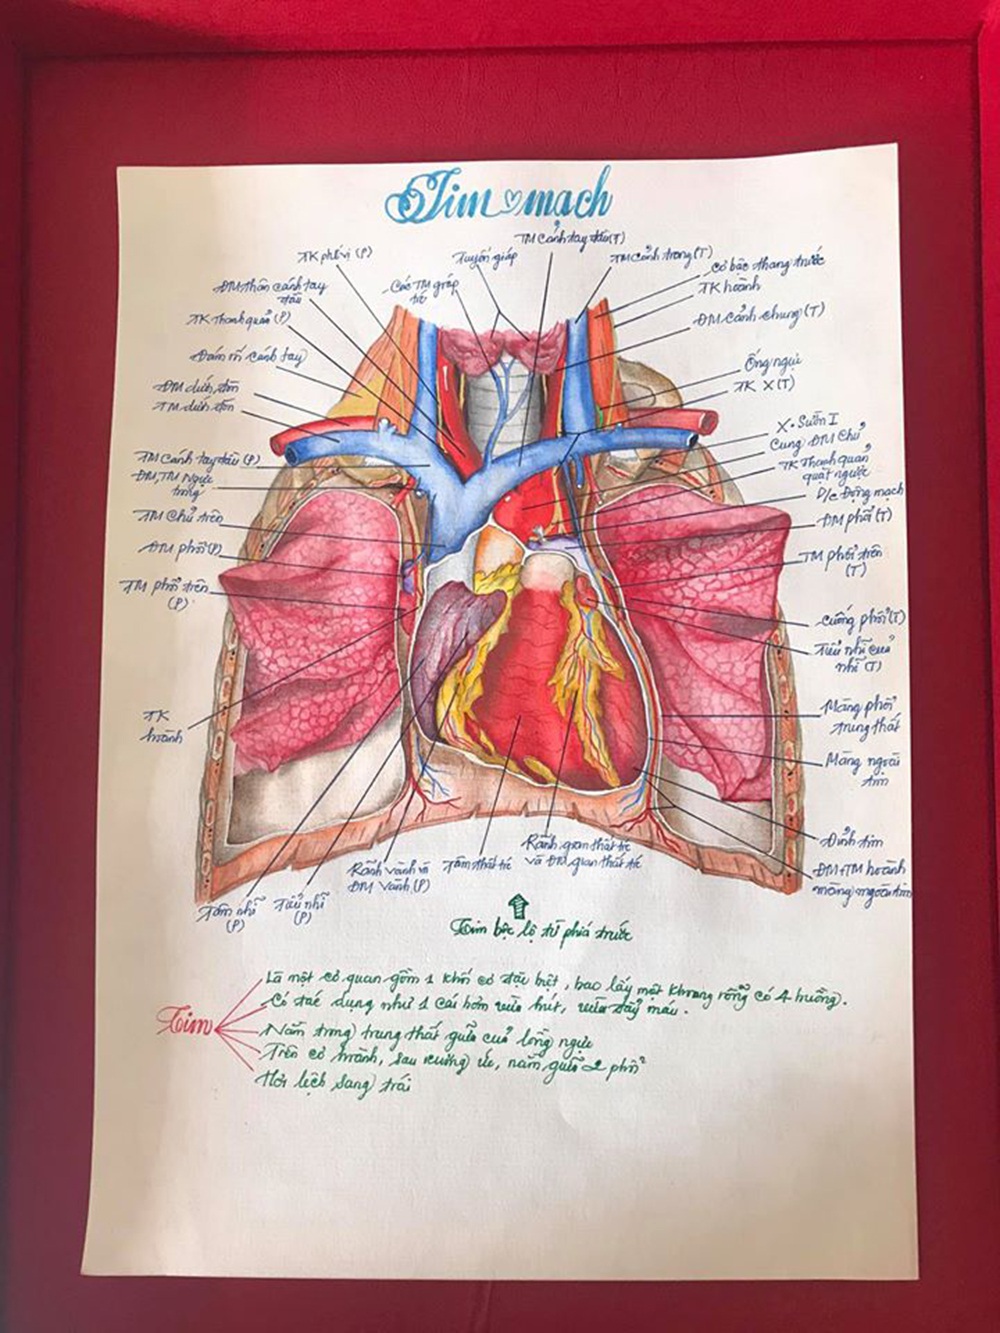 Tim mạch
TM cánh tay đầu (T)
TK phế vị (P)
Tuyến giáp
TM cảnh trong (T)
Cơ bậc thang trước
ĐM thân cánh tay
đầu
Các TM giáp
TK hoành
TK thanh quản (P)
ĐM cảnh chung (T)
Đám rối cánh tay
Ống ngực
ĐM dưới đòn
TK X (T)
TM dưới đòn
X. Sườn I
Cung ĐM Chủ
TM cánh tay đầu (P)
TK Thanh quản
quặt ngược
ĐM, TM Ngực
trong
D/c Động mạch
TM Chủ trên
ĐM phổi (T)
ĐM phổi (P)
TM phổi trên
(T)
TM phổi trên
(P)
Cuống phổi (T)
Tiểu nhĩ của
nhĩ (T)
TK
hoành
Màng phổi
trung thất
Màng ngoài
tim
Đỉnh tim
Rãnh gian thất tr
và ĐM gian thất tr
Rãnh vành và
ĐM vành (P)
Tâm thất tr
ĐM+TM hoành
màng ngoài tim
Tâm nhĩ
(P)
Tiểu nhĩ
(P)
Tim bộc lộ từ phía trước
Là một cơ quan gồm 1 khối cơ đặc biệt, bao lấy một khoang rỗng có 4 buồng.
Có tác dụng như 1 cái bơm vừa hút, vừa đẩy máu.
Tim
Nằm trong trung thất giữa của lồng ngực
Trên cơ hoành, sau xương ức, nằm giữa 2 phổi
Hơi lệch sang trái